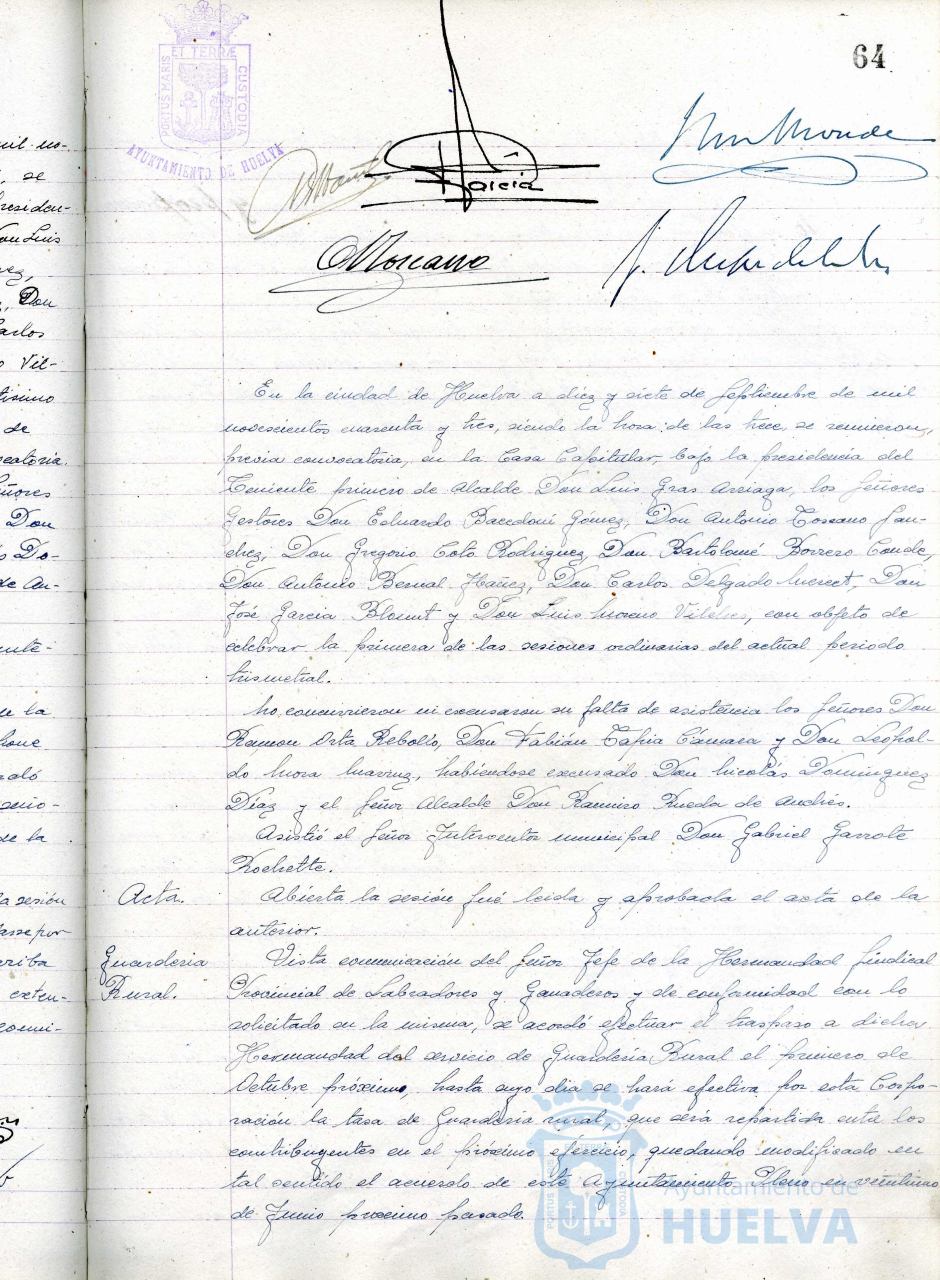 64
PORTUS MARIS ET TERRÆ CUSTODIA
AYUNTAMIENTO DE HUELVA
García
Toscano
En la ciudad de Huelva a diez y siete de Septiembre de mil
novescientos cuarenta y tres, siendo la hora de las trece, se reunieron,
previa convocatoria, en la Casa Capitular, bajo la presidencia del
Teniente primero de Alcalde Don Luis Gras Arriaga, los Señores
Gestores Don Eduardo Bacedoni Gómez, Don Antonio Toscano San-
chez, Don Gregorio Coto Rodriguez, Don Bartolomé Borrero Conde,
Don Antonio Bernal Ibañez, Don Carlos Delgado Merect, Don
José Garcia Blount y Don Luis Moreno Vilches, con objeto de
celebrar la primera de las sesiones ordinarias del actual periodo
trismetral.
No concurrieron ni excusaron su falta de asistencia los Señores Don
Ramon Orta Rebollo, Don Fabián Tapia Cámara y Don Leopol-
do Mora, habiendose excusado Don Nicolás Dominguez
Díaz y el Señor Alcalde Don Ramiro Rueda de Andrés.
Asistió el Señor Interventor municipal Don Gabriel Garrote
Rochette.
Acta.
Abierta la sesión fué leida y aprobada el acta de la
anterior.
Guarderia
Rural.
Vista comunicación del Señor Jefe de la Hermandad Sindical
Provincial de Labradores y Ganaderos y de conformidad con lo
solicitado en la misma, se acordó efectuar el traspaso a dicha
Hermandad del servicio de Guardería Rural el primero de
Octubre próximo, hasta cuyo dia se hará efectiva por esta Corpo-
ración la tasa de Guardería rural, que será repartida entre los
contribuyentes en el próximo ejercicio, quedando modificado en
tal sentido el acuerdo de este Ayuntamiento Pleno en veintiuno
de Junio proximo pasado.
Ayuntamiento de
HUELVA